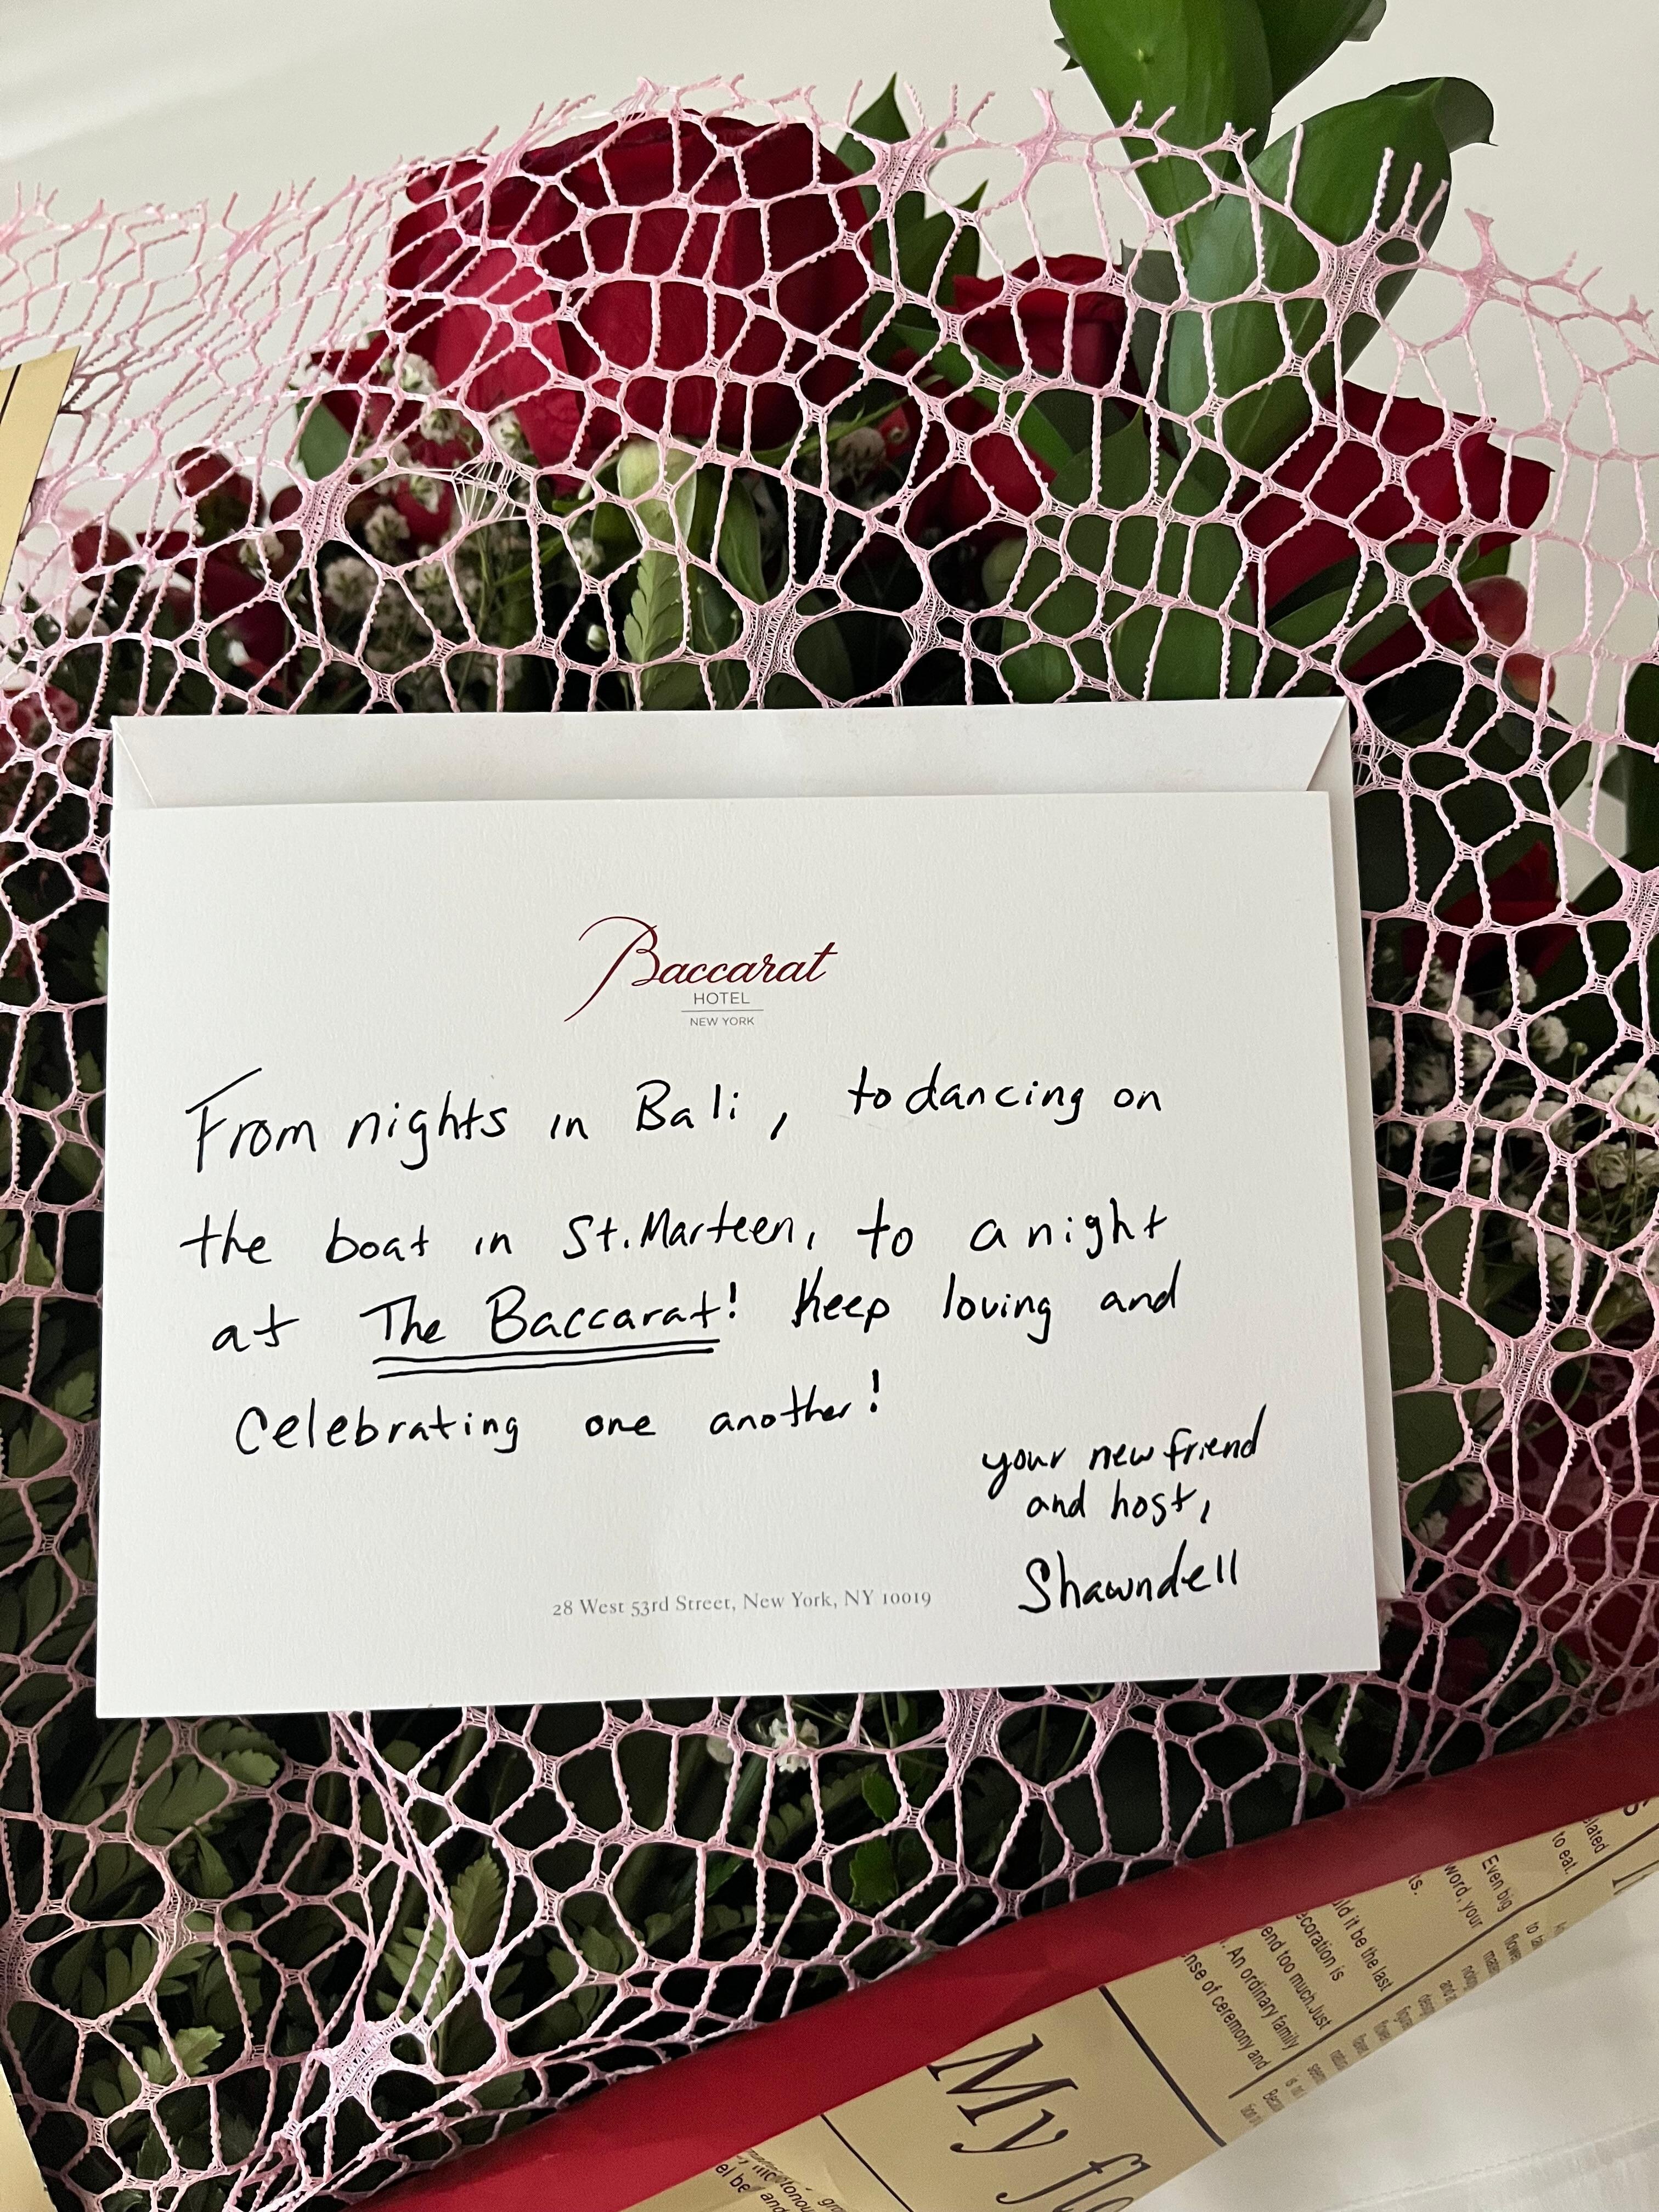 Baccarat
HOTEL
NEW YORK
From nights in Bali, to dancing on
the boat in St. Marteen, to a night
at The Baccarat! Keep loving and
Celebrating one another!
your new friend
and host,
Shawndell
28 West 53rd Street, New York, NY 10019
lated
to eat.
Even big
word, your
ts.
ld it be the last
ecoration is
end too much. Just
. An ordinary family
nse of ceremony and
My fl